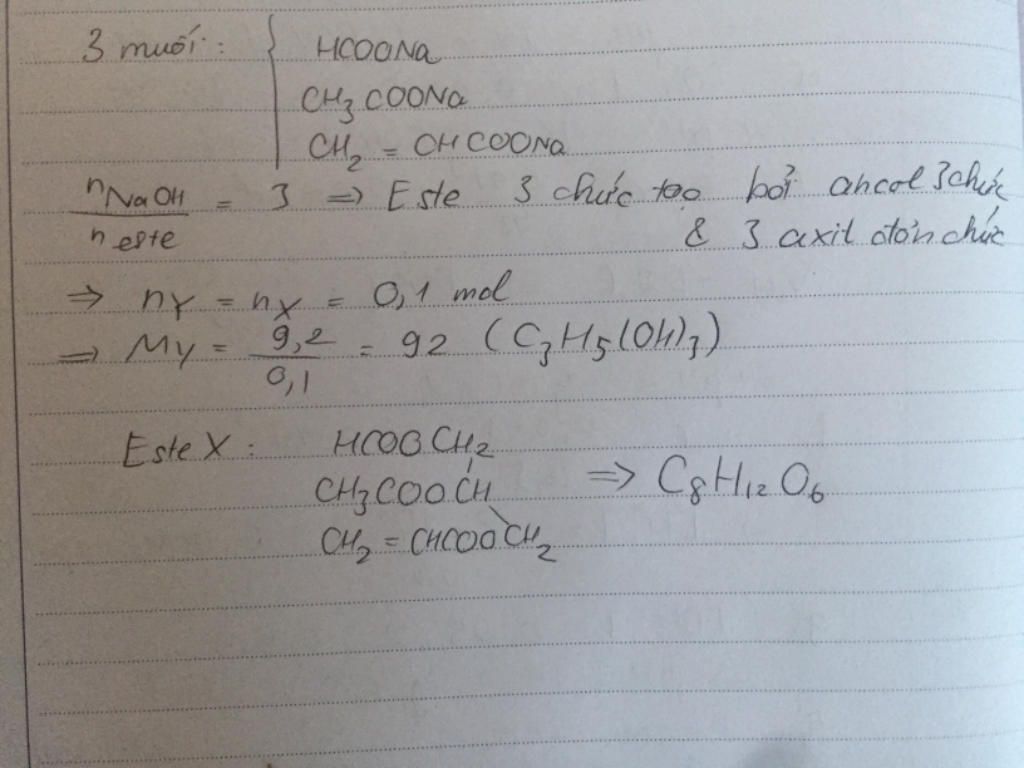 3 muối: { HCOONa
CH₃COONa
CH₂ = CHCOONa
nNaOH / n este = 3 => Este 3 chức tạo bởi ancol 3 chức
& 3 axit đơn chức
=> nY = nX = 0,1 mol
=> MY = 9,2 / 0,1 = 92 (C₃H₅(OH)₃)
Este X: HCOOCH₂
CH₃COOCH => C₈H₁₂O₆
CH₂ = CHCOOCH₂